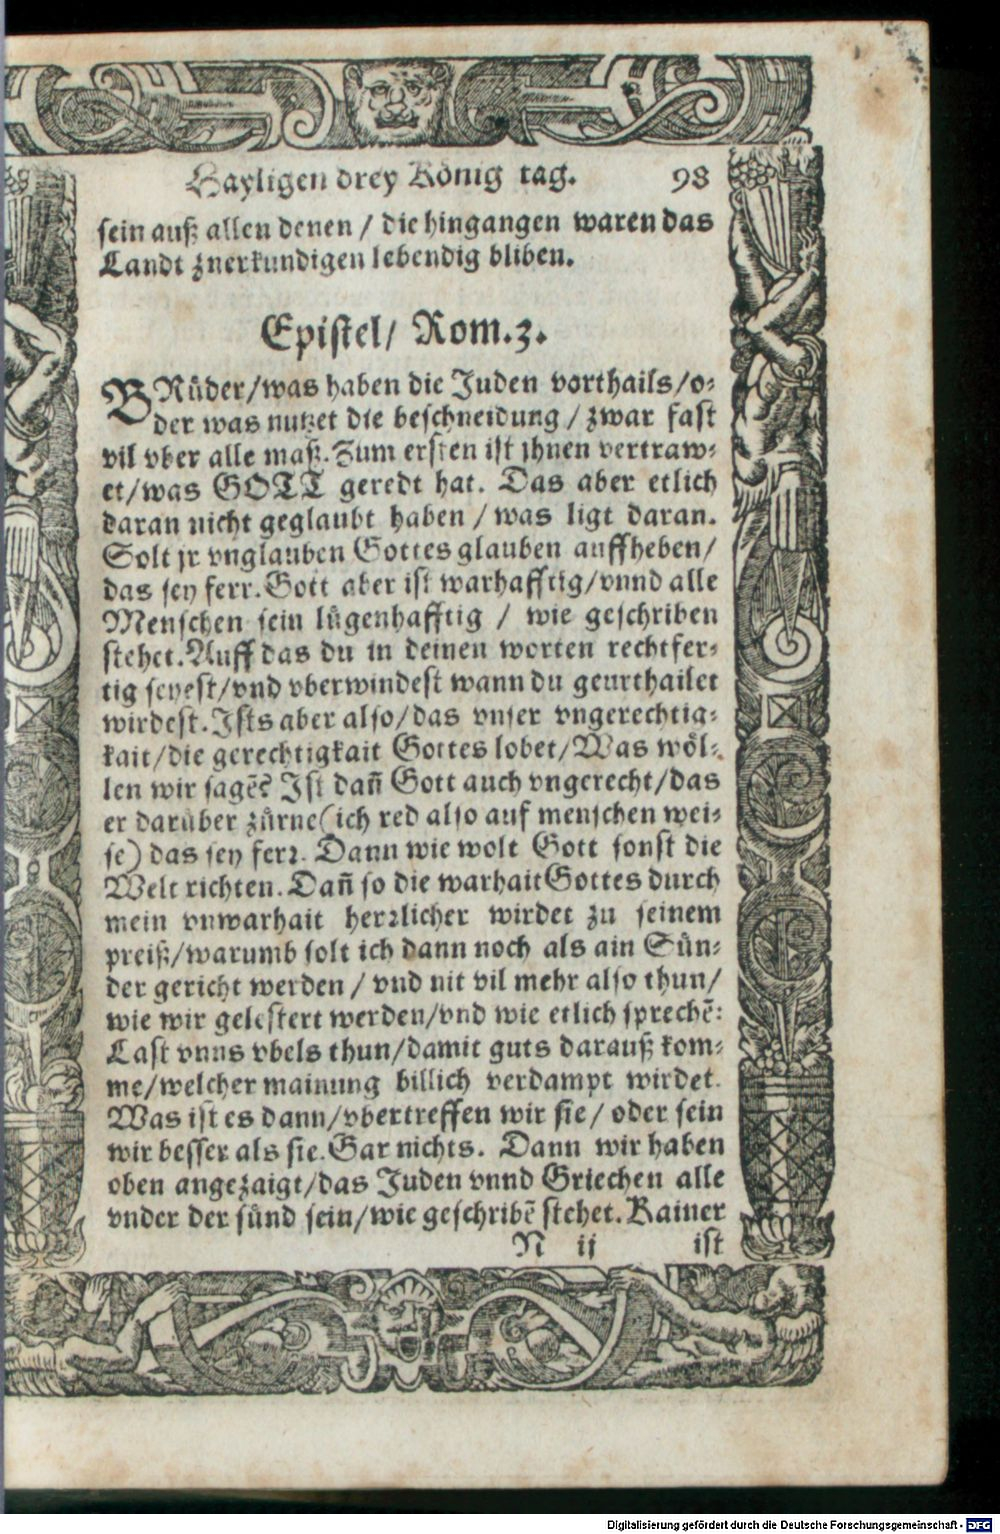 Hayligen drey König tag. 98
sein auß allen denen / die hingangen waren das
Landt zuerkundigen lebendig bliben.
Epistel/ Rom.3.
BRüder/was haben die Juden vorthails/o⸗
der was nutzet die beschneidung / zwar fast
vil vber alle maß. Zum ersten ist jhnen vertraw⸗
et/was GOTT geredt hat. Das aber etlich
daran nicht geglaubt haben / was ligt daran.
Solt jr vnglauben Gottes glauben auffheben/
das sey ferr. Gott aber ist warhafftig/vnnd alle
Menschen sein lügenhafftig / wie geschriben
stehet. Auff das du in deinen worten rechtfer⸗
tig seyest/vnd vberwindest wann du geurthailet
wirdest. Ists aber also/das vnser vngerechtig⸗
kait/die gerechtigkait Gottes lobet/Was wöl⸗
len wir sagē? Ist dañ Gott auch vngerecht/das
er darüber zürne(ich red also auf menschen wei⸗
se) das sey ferꝛ. Dann wie wolt Gott sonst die
Welt richten. Dañ so die warhait Gottes durch
mein vnwarhait herꝛlicher wirdet zu seinem
preiß/warumb solt ich dann noch als ain Sün⸗
der gericht werden / vnd nit vil mehr also thun/
wie wir gelestert werden/vnd wie etlich sprechē:
Last vnns vbels thun/damit guts darauß kom⸗
me/welcher mainung billich verdampt wirdet.
Was ist es dann/vbertreffen wir sie / oder sein
wir besser als sie. Gar nichts. Dann wir haben
oben angezaigt/das Juden vnnd Griechen alle
vnder der sünd sein/wie geschribē stehet. Kainer
N ij ist
Digitalisierung gefördert durch die Deutsche Forschungsgemeinschaft - DFG